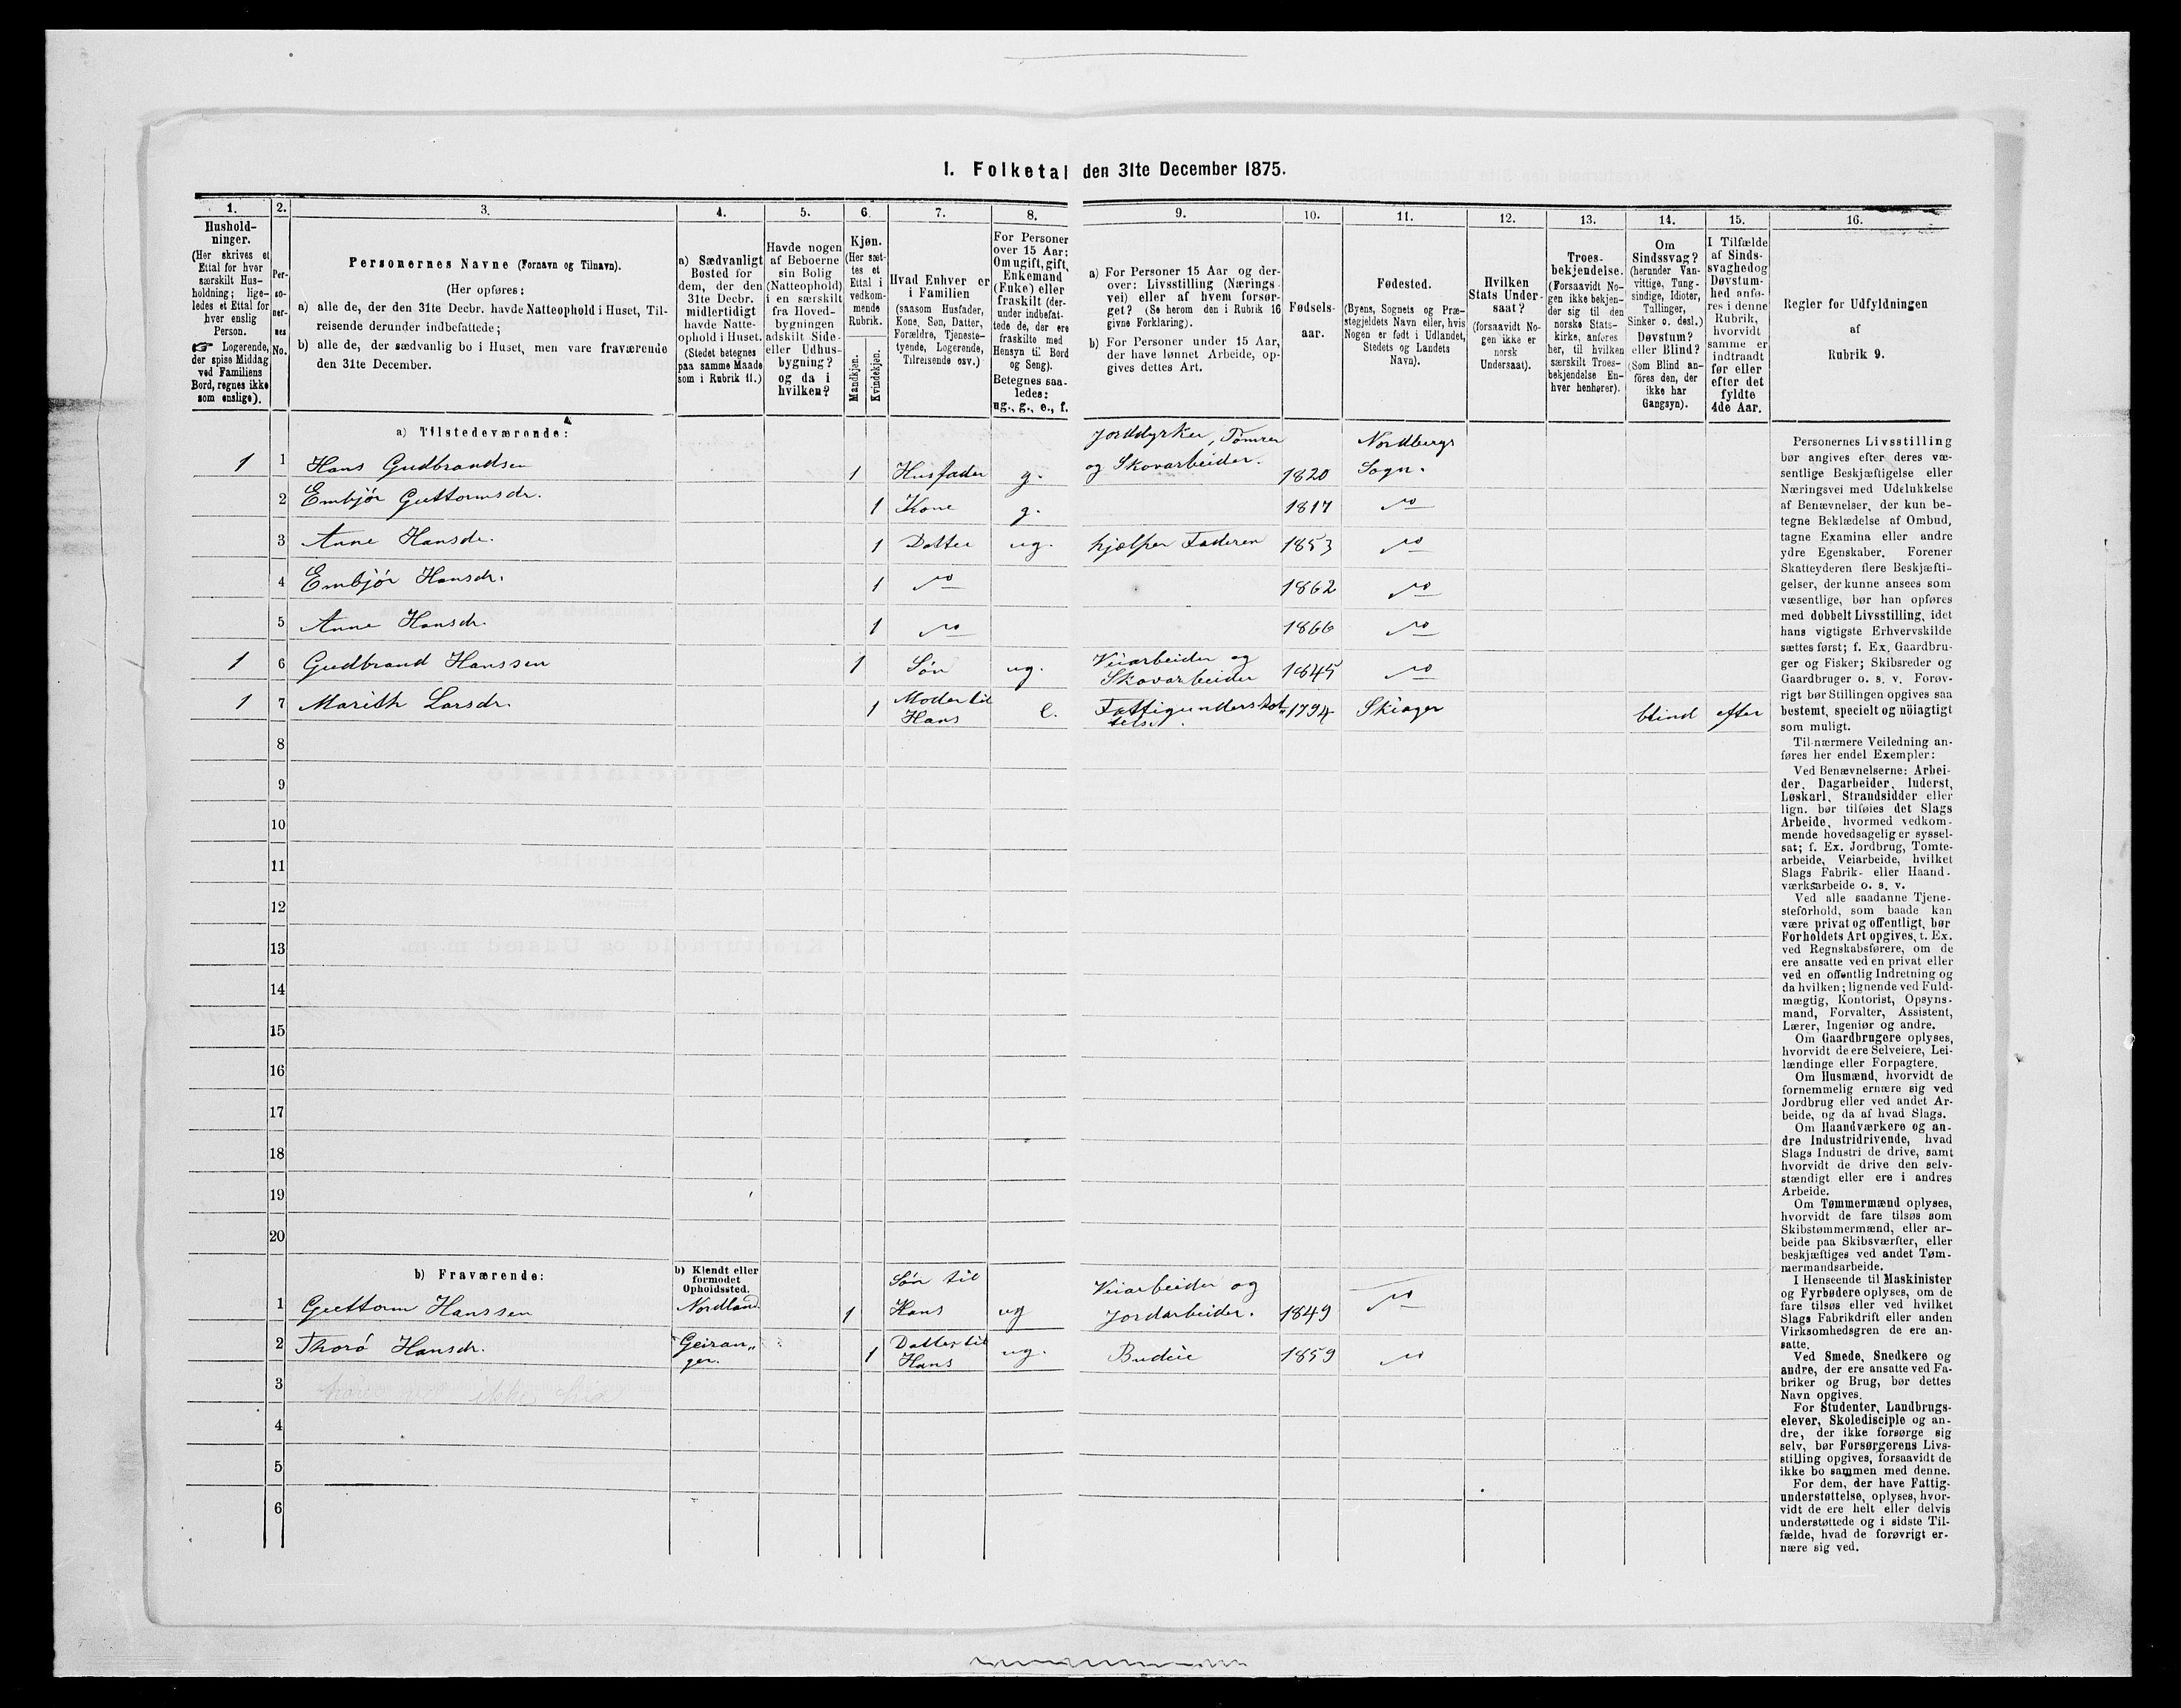 1. Folketal den 31te December 1875.
1. 2. 3. 4. 5. 6. 7. 8. 9. 10. 11. 12. 13. 14. 15. 16.
Hushold-
ninger.
(Her skrives et
Ettal for hver
særskilt Hus-
holdning; lige-
ledes et Ettal for
hver enslig
Person.
☞ Logerende,
der spise Middag
ved Familiens
Bord, regnes ikke
som enslige).
Per-
so-
ner-
nes
No.
Personernes Navne (Fornavn og Tilnavn).
(Her opføres:
a) alle de, der den 31te Decbr. havde Natteophold i Huset, Til-
reisende derunder indbefattede;
b) alle de, der sædvanlig bo i Huset, men vare fraværende
den 31te December.
a) Sædvanligt
Bosted for
dem, der den
31te Decbr.
midlertidigt
havde Natte-
ophold i Huset.
(Stedet betegnes
paa samme Maade
som i Rubrik 11.)
Havde nogen
af Beboerne
sin Bolig
(Natteophold)
i en særskilt
fra Hoved-
bygningen
adskilt Side-
eller Udhus-
bygning?
og da i
hvilken?
Kjøn.
(Her sæt-
tes et
Ettal i
vedkom-
mende
Rubrik.
Mandkjøn.
Kvindekjøn.
Hvad Enhver er
i Familien
(saasom Husfader,
Kone, Søn, Datter,
Forældre, Tjeneste-
tyende, Logerende,
Tilreisende osv.)
For Personer
over 15 Aar:
Om ugift, gift,
Enkemand
(Enke) eller
fraskilt (der-
under indbefat-
tede de, der ere
fraskilte med
Hensyn til Bord
og Seng).
Betegnes saa-
ledes:
ug., g., e., f.
a) For Personer 15 Aar og der-
over: Livsstilling (Nærings-
vei) eller af hvem forsør-
get? (Se herom den i Rubrik 16
givne Forklaring).
b) For Personer under 15 Aar,
der have lønnet Arbeide, op-
gives dettes Art.
Fødsels-
aar.
Fødested.
(Byens, Sognets og Præ-
stegjeldets Navn eller, hvis
Nogen er født i Udlandet,
Stedets og Landets
Navn).
Hvilken
Stats Under-
saat?
(forsaavidt No-
gen ikke er
norsk
Undersaat).
Troes-
bekjendelse.
(Forsaavidt No-
gen ikke bekjen-
der sig til den
norske Stats-
kirke, anføres
her, til hvilken
særskilt Troes-
bekjendelse En-
hver henhører).
Om
Sindssvag?
(herunder Van-
vittige, Tung-
sindige, Idioter,
Tullinger,
Sinker o. desl.)
Døvstum?
eller Blind?
(Som Blind an-
føres den, der
ikke har
Gangsyn).
I Tilfælde
af Sinds-
svaghed og
Døvstum-
hed anfø-
res i denne
Rubrik,
hvorvidt
samme er
indtraadt
før eller
efter det
fyldte
4de Aar.
Regler for Udfyldningen
af
Rubrik 9.
a) Tilstedeværende:
1 1 Hans Gudbrandsen 1 Husfader g. Jorddyrker, Tømrer og Skovarbeider. 1820 Nordbergs Sogn.
2 Embjør Guttormsdr. 1 Kone g. 1817 do
3 Anne Hansdr. 1 Datter ug. hjælper Faderen 1853 do
4 Embjør Hansdr. 1 do 1862 do
5 Anne Hansdr. 1 do 1866 do
1 6 Gudbrand Hanssen 1 Søn ug. Veiarbeider og Skovarbeider 1845 do
1 7 Marith Larsdr. 1 Moder til Hans e. Fattigunderstøt-telse. 1794 Skiager blind efter
8
9
10
11
12
13
14
15
16
17
18
19
20
b) Fraværende:
b) Kjendt eller
formodet
Opholdssted.
1 Guttorm Hanssen Nordland 1 Søn til Hans ug Veiarbeider og Jordarbeider. 1849 do
2 Thorø Hansdr. Geiran„ ger. 1 Datter til Hans ug. Budeie 1859 do
3
4
5
6
Personernes Livsstilling
bør angives efter deres væ-
sentlige Beskjæftigelse eller
Næringsvei med Udelukkelse
af Benævnelser, der kun be-
tegne Beklædelse af Ombud,
tagne Examina eller andre
ydre Egenskaber. Forener
Skatteyderen flere Beskjæfti-
gelser, der kunne ansees som
væsentlige, bør han opføres
med dobbelt Livsstilling, idet
hans vigtigste Erhvervskilde
sættes først; f. Ex. Gaardbru-
ger og Fisker; Skibsreder og
Gaardbruger o. s. v. Forøv-
rigt bør Stillingen opgives saa
bestemt, specielt og nöiagtigt
som muligt.
Til nærmere Veiledning an-
føres her endel Exempler:
Ved Benævnelserne: Arbei-
der, Dagarbeider, Inderst,
Løskarl, Strandsidder eller
lign. bør tilføies det Slags
Arbeide, hvormed vedkom-
mende hovedsagelig er syssel-
sat; f. Ex. Jordbrug, Tomte-
arbeide, Veiarbeide, hvilket
Slags Fabrik- eller Haand-
værksarbeide o. s. v.
Ved alle saadanne Tjene-
steforhold, som baade kan
være privat og offentligt, bør
Forholdets Art opgives, t. Ex.
ved Regnskabsførere, om de
ere ansatte ved en privat eller
ved en offentlig Indretning og
da hvilken; lignende ved Fuld-
mægtig, Kontorist, Opsyns-
mand, Forvalter, Assistent,
Lærer, Ingeniør og andre.
Om Gaardbrugere oplyses,
hvorvidt de ere Selveiere, Lei-
lændinge eller Forpagtere.
Om Husmænd, hvorvidt de
fornemmelig ernære sig ved
Jordbrug eller ved andet Ar-
beide, og da af hvad Slags.
Om Haandværkere og an-
dre Industridrivende, hvad
Slags Industri de drive, samt
hvorvidt de drive den selv-
stændigt eller ere i andres
Arbeide.
Om Tømmermænd oplyses,
hvorvidt de fare tilsøs som
Skibstømmermænd, eller ar-
beide paa Skibsværfter, eller
beskjæftiges ved andet Tøm-
mermandsarbeide.
I Henseende til Maskinister
og Fyrbødere oplyses, om de
fare tilsøs eller ved hvilket
Slags Fabrikdrift eller anden
Virksomhedsgren de ere an-
satte.
Ved Smede, Snedkere og
andre, der ere ansatte ved Fa-
briker og Brug, bør dettes
Navn opgives.
For Studenter, Landbrugs-
elever, Skoledisciple og an-
dre, der ikke forsørge sig
selv, bør Forsørgerens Livs-
stilling opgives, forsaavidt de
ikke bo sammen med denne.
For dem, der have Fattig-
understøttelse, oplyses, hvor-
vidt de ere helt eller delvis
understøttede og i sidste Til-
fælde, hvad de forøvrigt er-
nære sig ved.